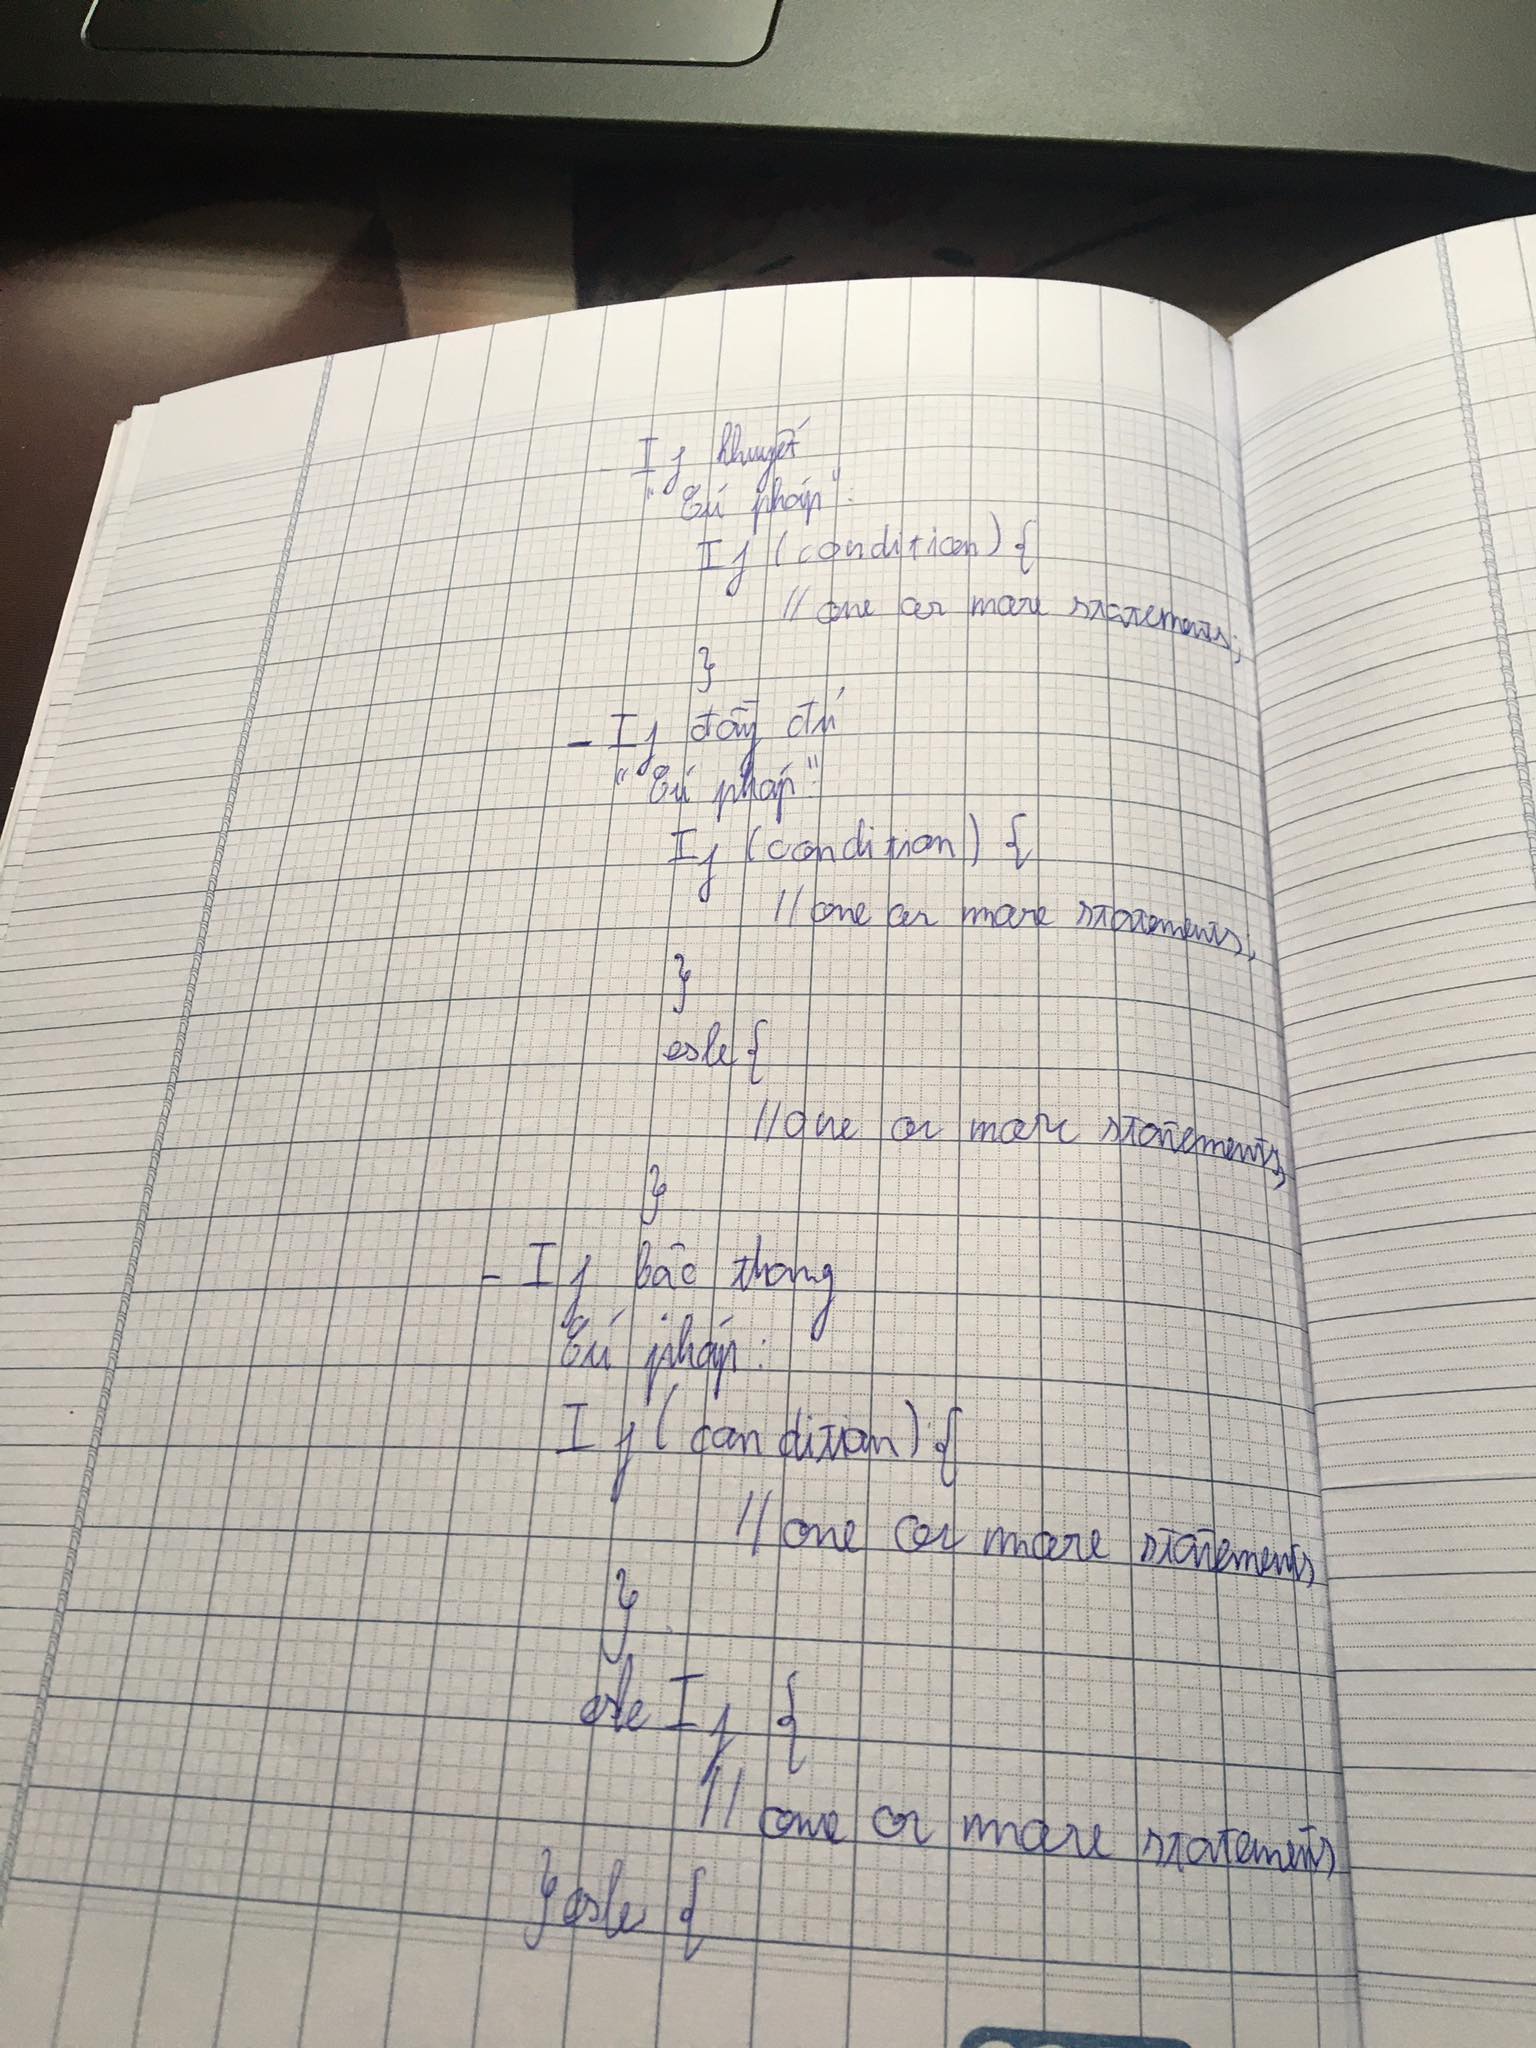 - If khuyết
"Cú pháp":
If (condition) {
// one or more statements;
}
- If đầy đủ
"Cú pháp":
If (condition) {
// one or more statements;
}
esle {
// one or more statements;
}
- If bậc thang
Cú pháp:
If (condition) {
// one or more statements
}
esle If {
// one or more statements
} esle {